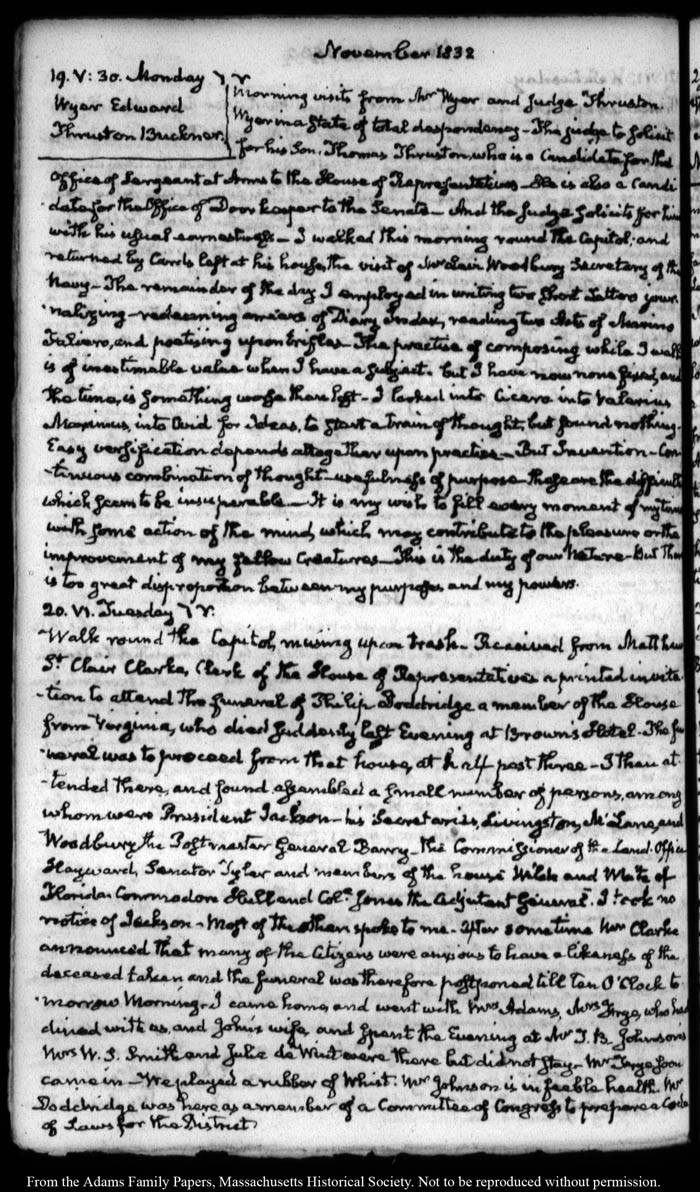 November 1832
19. V: 30. Monday
Wyer Edward
Thruston Buckner.
Morning visits from Mr Wyer and Judge Thruston.
Wyer in a state of total despondency — The judge to solicit
for his Son, Thomas Thruston, who is a Candidate for the
Office of Sergeant at Arms to the House of Representatives — He is also a Candi
date for the Office of Door keeper to the Senate — And the Judge solicits for him
with his usual earnestness — I walked this morning round the Capitol; and
returned by Cards left at his house, the visit of Mr Levi Woodbury Secretary of the
Navy — The remainder of the day I employed in writing two short Letters jour-
nalizing — redeeming arrears of Diary Index, reading two Acts of Marino
Faliero, and poetising upon trifles. The practice of composing while I walk
is of inestimable value when I have a subject. but I have now none fixed, and
the time, is something worse than lost — I looked into Cicero into Valerius
Maximus, into Ovid for Ideas, to start a train of thought, but found nothing.
Easy versification depends altogether upon practice — But Invention — Con-
tinuous combination of thought — usefulness of purpose these are the difficulties
which seem to be insuperable — It is my wish to fill every moment of my time
with some action of the mind, which may contribute to the pleasure or the
improvement of my fellow Creatures — This is the duty of our Nature — But there
is too great disproportion between my purposes and my powers.
20. VI. Tuesday
Walk round the Capitol, musing upon trash. Received from Matthew
St. Clair Clarke, Clerk of the House of Representatives a printed invita-
tion to attend the funeral of Philip Doddridge a member of the House
from Virginia, who died suddenly last Evening at Brown's Hotel — The fu-
neral was to proceed from that house, at half past three — I then at-
tended there, and found assembled a small number of persons, among
whom were President Jackson — his Secretaries, Livingston, McLane, and
Woodbury the Postmaster General Barry — the Commissioner of the Land-Office
Hayward, Senator Tyler and members of the house Wilde and White of
Florida Commodore Hull and Coll. Jones the Adjutant General. I took no
notice of Jackson — Most of the others spoke to me. After sometime Mr Clarke
announced that many of the Citizens were anxious to have a likeness of the
deceased taken and the funeral was therefore postponed till ten O'Clock to-
morrow Morning. I came home, and went with Mrs Adams, Mrs Frye, who had
dined with us, and John's wife, and spent the Evening at Mr T. B. Johnson's
Mrs W. S. Smith and Julia de Wint were there but did not stay — Mr Frye soon
came in — We played a rubber of Whist. Mr Johnson is in feeble health. Mr
Doddridge was here as a member of a Committee of Congress to prepare a Code
of Laws for the District
From the Adams Family Papers, Massachusetts Historical Society. Not to be reproduced without permission.